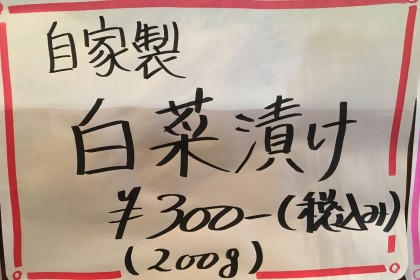 自家製
白菜漬け
¥300-(税込み)
(200g)